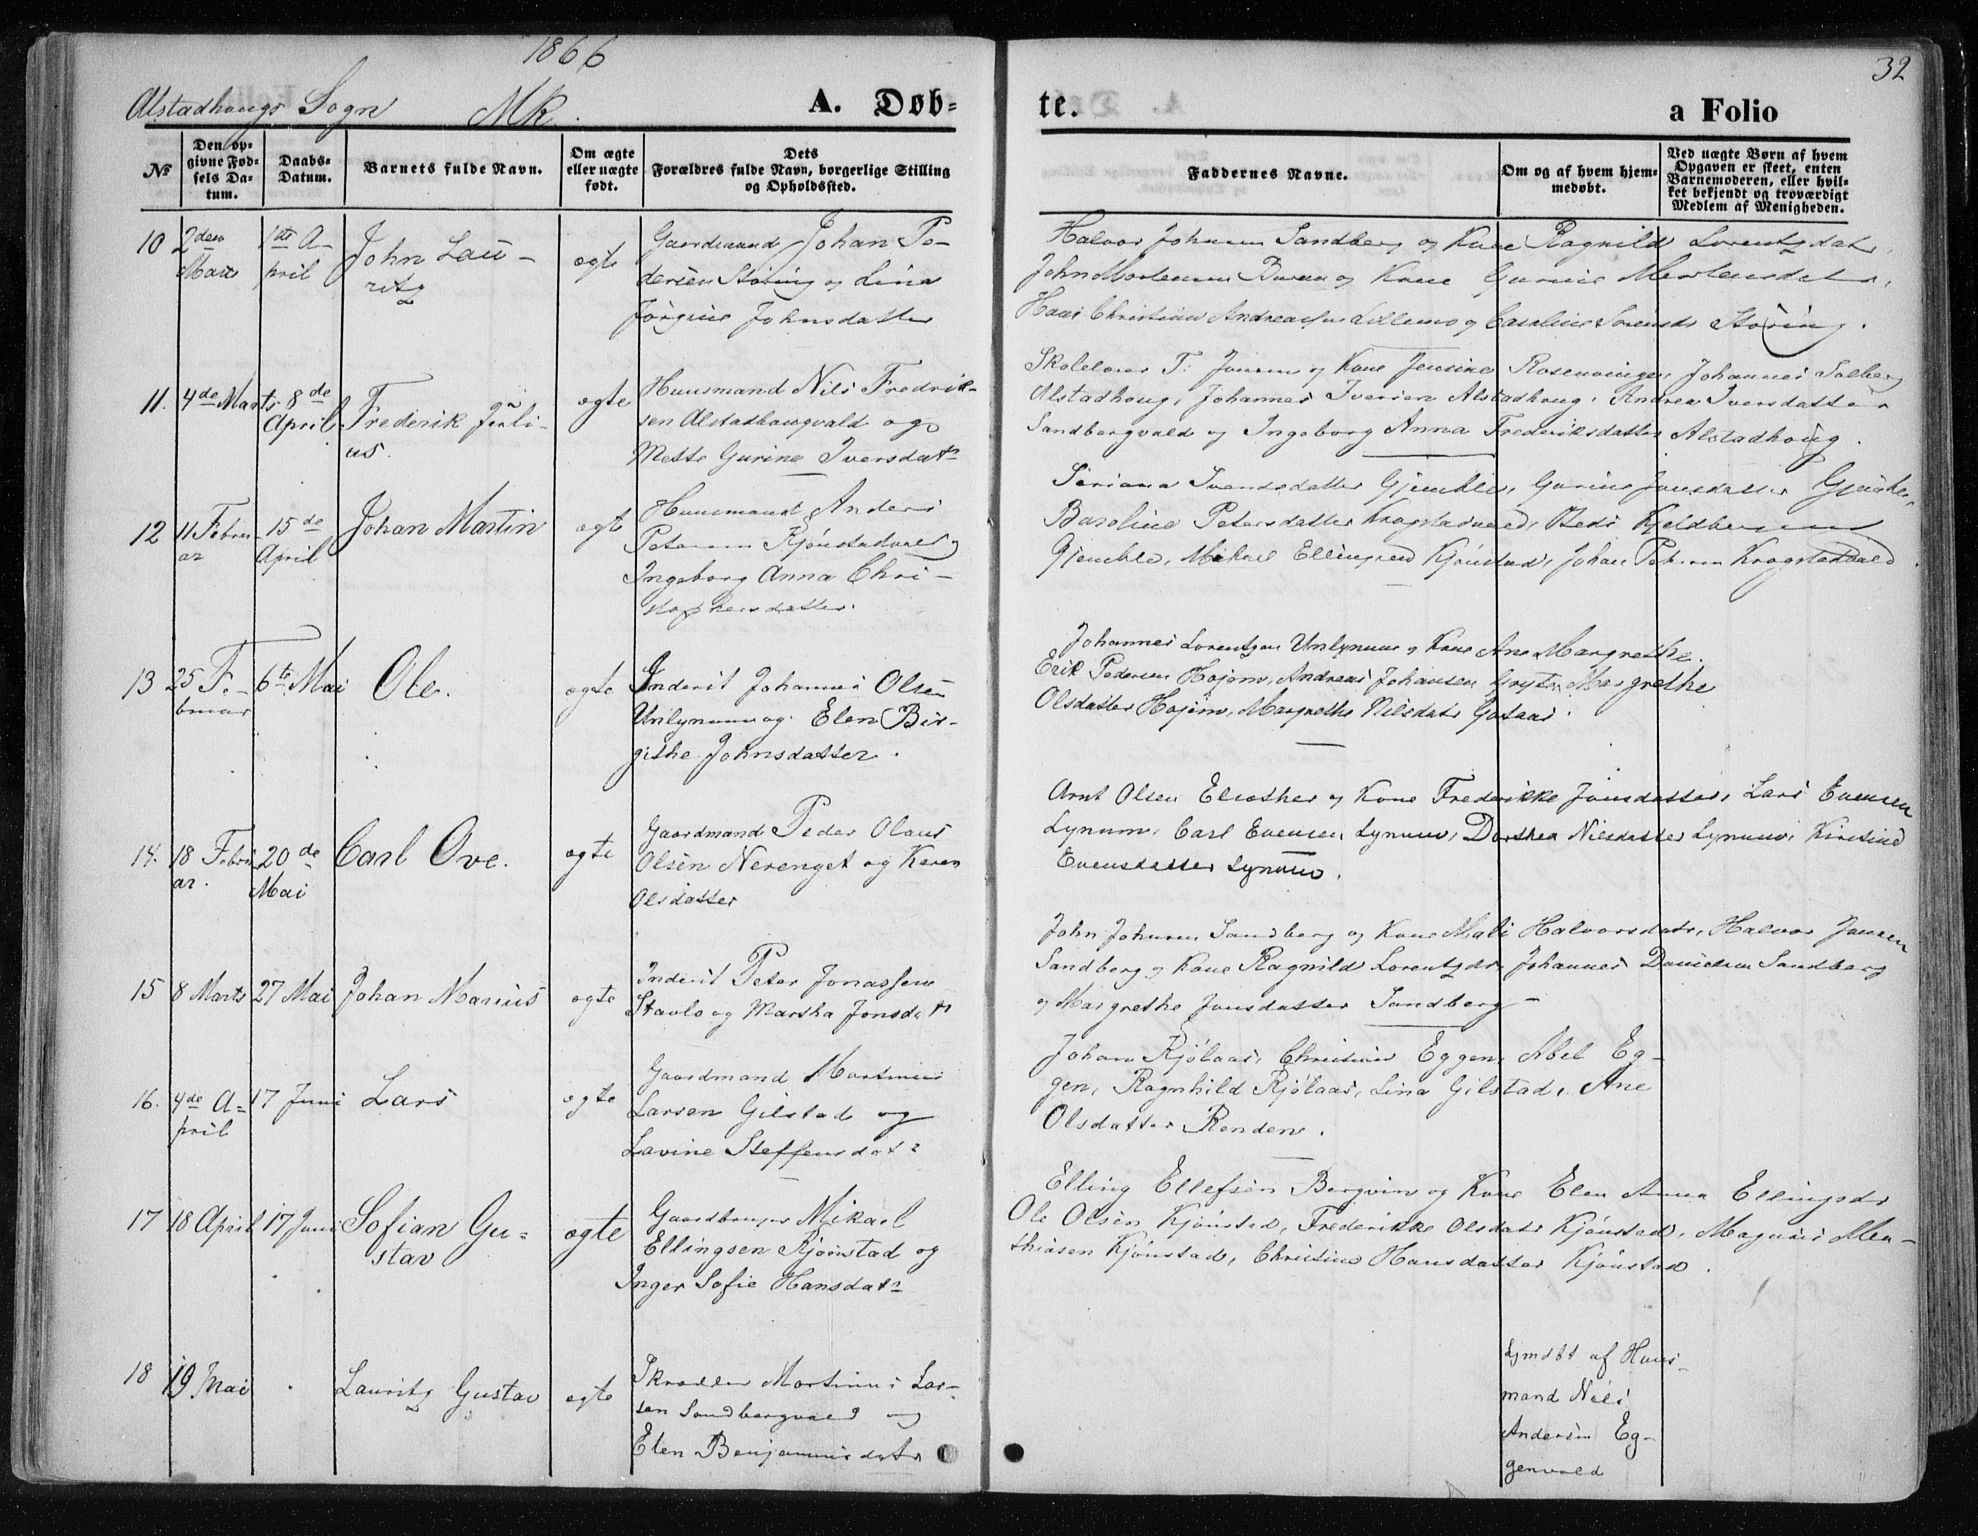 1866
32
Alstadhougs Sogn Mk.
A. Døb=
te.
a Folio
No
Den op-
givne Fød-
sels Da-
tum.
Daabs-
Datum.
Barnets fulde Navn.
Om ægte
eller uægte
født.
Dets
Forældres fulde Navn, borgerlige Stilling
og Opholdssted.
Faddernes Navne.
Om og af hvem hjem-
medøbt.
Ved uægte Børn af hvem
Opgaven er skeet, enten
Barnemoderen, eller hvil-
ket bekjendt og troværdigt
Medlem af Menigheden.
10
2den
1ste A-
pril
John Lau-
ritz
ægte
Gaardmand Johan Pe-
dersen Støring og Lina
Jørgine Johnsdatter
Halvor Johnsen Sandberg og Kone Ragnild Lorentzdatr,
John Mortensen og Kone Gurine Mortensdatr,
Hans Christian Andreassen og Caroline Støring.
11.
4de Marts
8de
April
Frederik Juli-
us.
ægte
Huusmand Nils Fredrik-
sen Alstadhougvald og
Mette Gurine Iversdatr
Skolelærer T. Jonsen og Kone Jensine Rosenvinge, Johannes Solberg
Alstadhoug, Johannes Iversen Alstadhoug, Andrea Iversdatter
Sandbergvald og Ingeborg Anna Frederiksdatter Alstadhoug.
12
11 Febru-
ar
15de
April
Johan Martin
ægte
Huusmand Anders
Petersen Kjönstadvald og
Ingeborg Anna Chri-
stophersdatter.
Svendsdatter Gjemble, Gurine Jonsdatter
Petersdatter Kragstadvald,
Gjemble, Mikael Ellingsen Kjönstad, Johan Petersen Kragstadvald
13
25 Fe-
bruar
6te Mai
Ole.
ægte
Inderst Johannes Olsen
Unlynum og Elen Bir-
githe Johnsdatter.
Johannes Lorentzen Unlynum og Kone Ane Margrethe.
Erik Pedersen Hojem, Andreas Johansen Margrethe
Olsdatter Hojem, Margrethe Nilsdatr
14.
18 Febru
ar.
20de
Mai
Carl Ove.
ægte
Gaardmand Peder Olaus
Olsen Nerenget og Karen
Olsdatter
Arnt Olsen og Kone Frederikke Jonsdatter, Lars Evensen
Lynum, Carl Evensen Lynum, Dorthea Nilsdatter Lynum, Kirstine
Evensdatter Lynum.
15
8 Marts
27 Mai
Johan Marius
ægte
Inderst Peter Jonassen
Stavlo og Martha Jonsdatr
John Johnsen Sandberg og Kone Mali Halvorsdatr, Halvor Jonsen
Sandberg og Kone Ragnild Lorentzdr, Johannes Danielsen Sandberg
og Margrethe Jonsdatter Sandberg
16.
4de A-
pril
17 Juni
Lars
ægte
Gaardmand Martinus
Larsen Gilstad og
Lavine Steffensdatr
Johan Rjölaas, Christian Eggen, Abel Eg-
gen, Ragnhild Rjölaas, Lina Gilstad, Ane
Olsdatter Renden.
17
18 April
17 Juni
Sofian Gu-
stav
ægte
Gaardbruger Mikael
Ellingsen Kjönstad og
Inger Sofie Hansdatr
Elling Ellefsen Bergvin og Kone Elen Anna Ellingsdr
Ole Olsen Kjönstad, Frederikke Olsdatr Kjönstad, Magnus Ma-
thiasen Kjönstad, Christine Hansdatter Kjönstad.
18
19 Mai
Lauritz Gustav
ægte
Skrædder Martinus Lar-
sen Sandbergvald og
Elen Benjaminsdatr
Hjmdbt af Huus-
mand Nils
Andersen Eg-
genvald